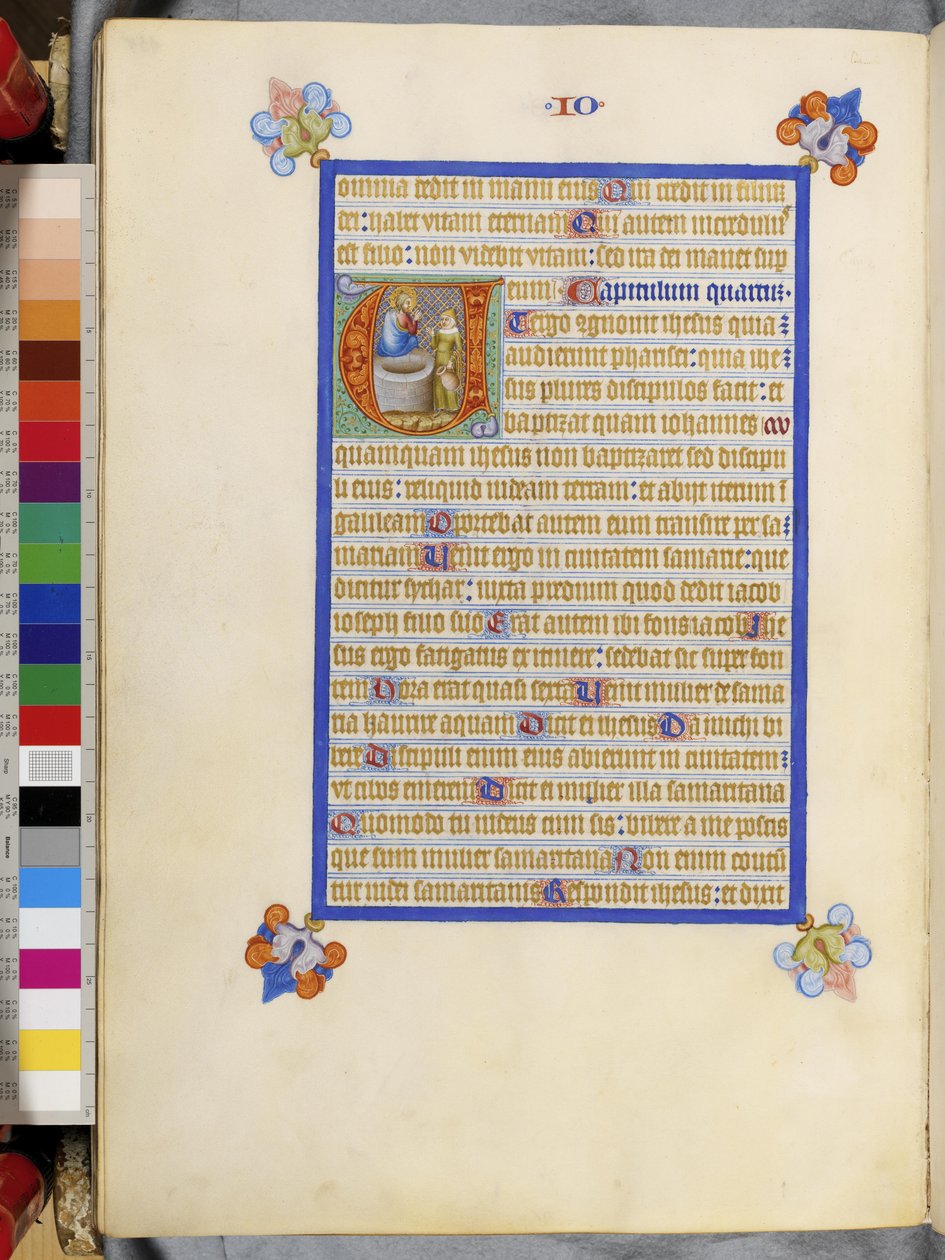 ·IO·
omnia dedit in manu eius Qui credit in filium
dei : habet vitam eternam Qui autem incredulus
est filio : non videbit vitam : sed ira dei manet sup
eum Capitulum quartum·
Ut ergo cognouit ihesus quia
audierunt pharisei : quia ihe
sus plures discipulos facit : et
baptizat quam iohannes
quamquam ihesus non baptizaret sed discipu
li eius : reliquid iudeam terram : et abijt iterum ī
galileam Oportebat autem eum transire per sa
mariam Uenit ergo in ciuitatem samarie : que
dicitur sychar : iuxta predium quod dedit iacob
ioseph filio suo Erat autem ibi fons iacob Ihe
sus ergo fatigatus ex itinere : sedebat sic super fon
tem Hora erat quasi sexta Uenit mulier de sama
ria haurire aquam Dicit ei ihesus Da michi bi
bere Discipuli enim eius abierunt in ciuitatem
vt cibos emerent Dicit ei mulier illa samaritana
Quomodo tu iudeus cum sis : bibere a me poscis
que sum mulier samaritana Non enim coutū
tur iudei samaritanis Respondit ihesus : et dixit